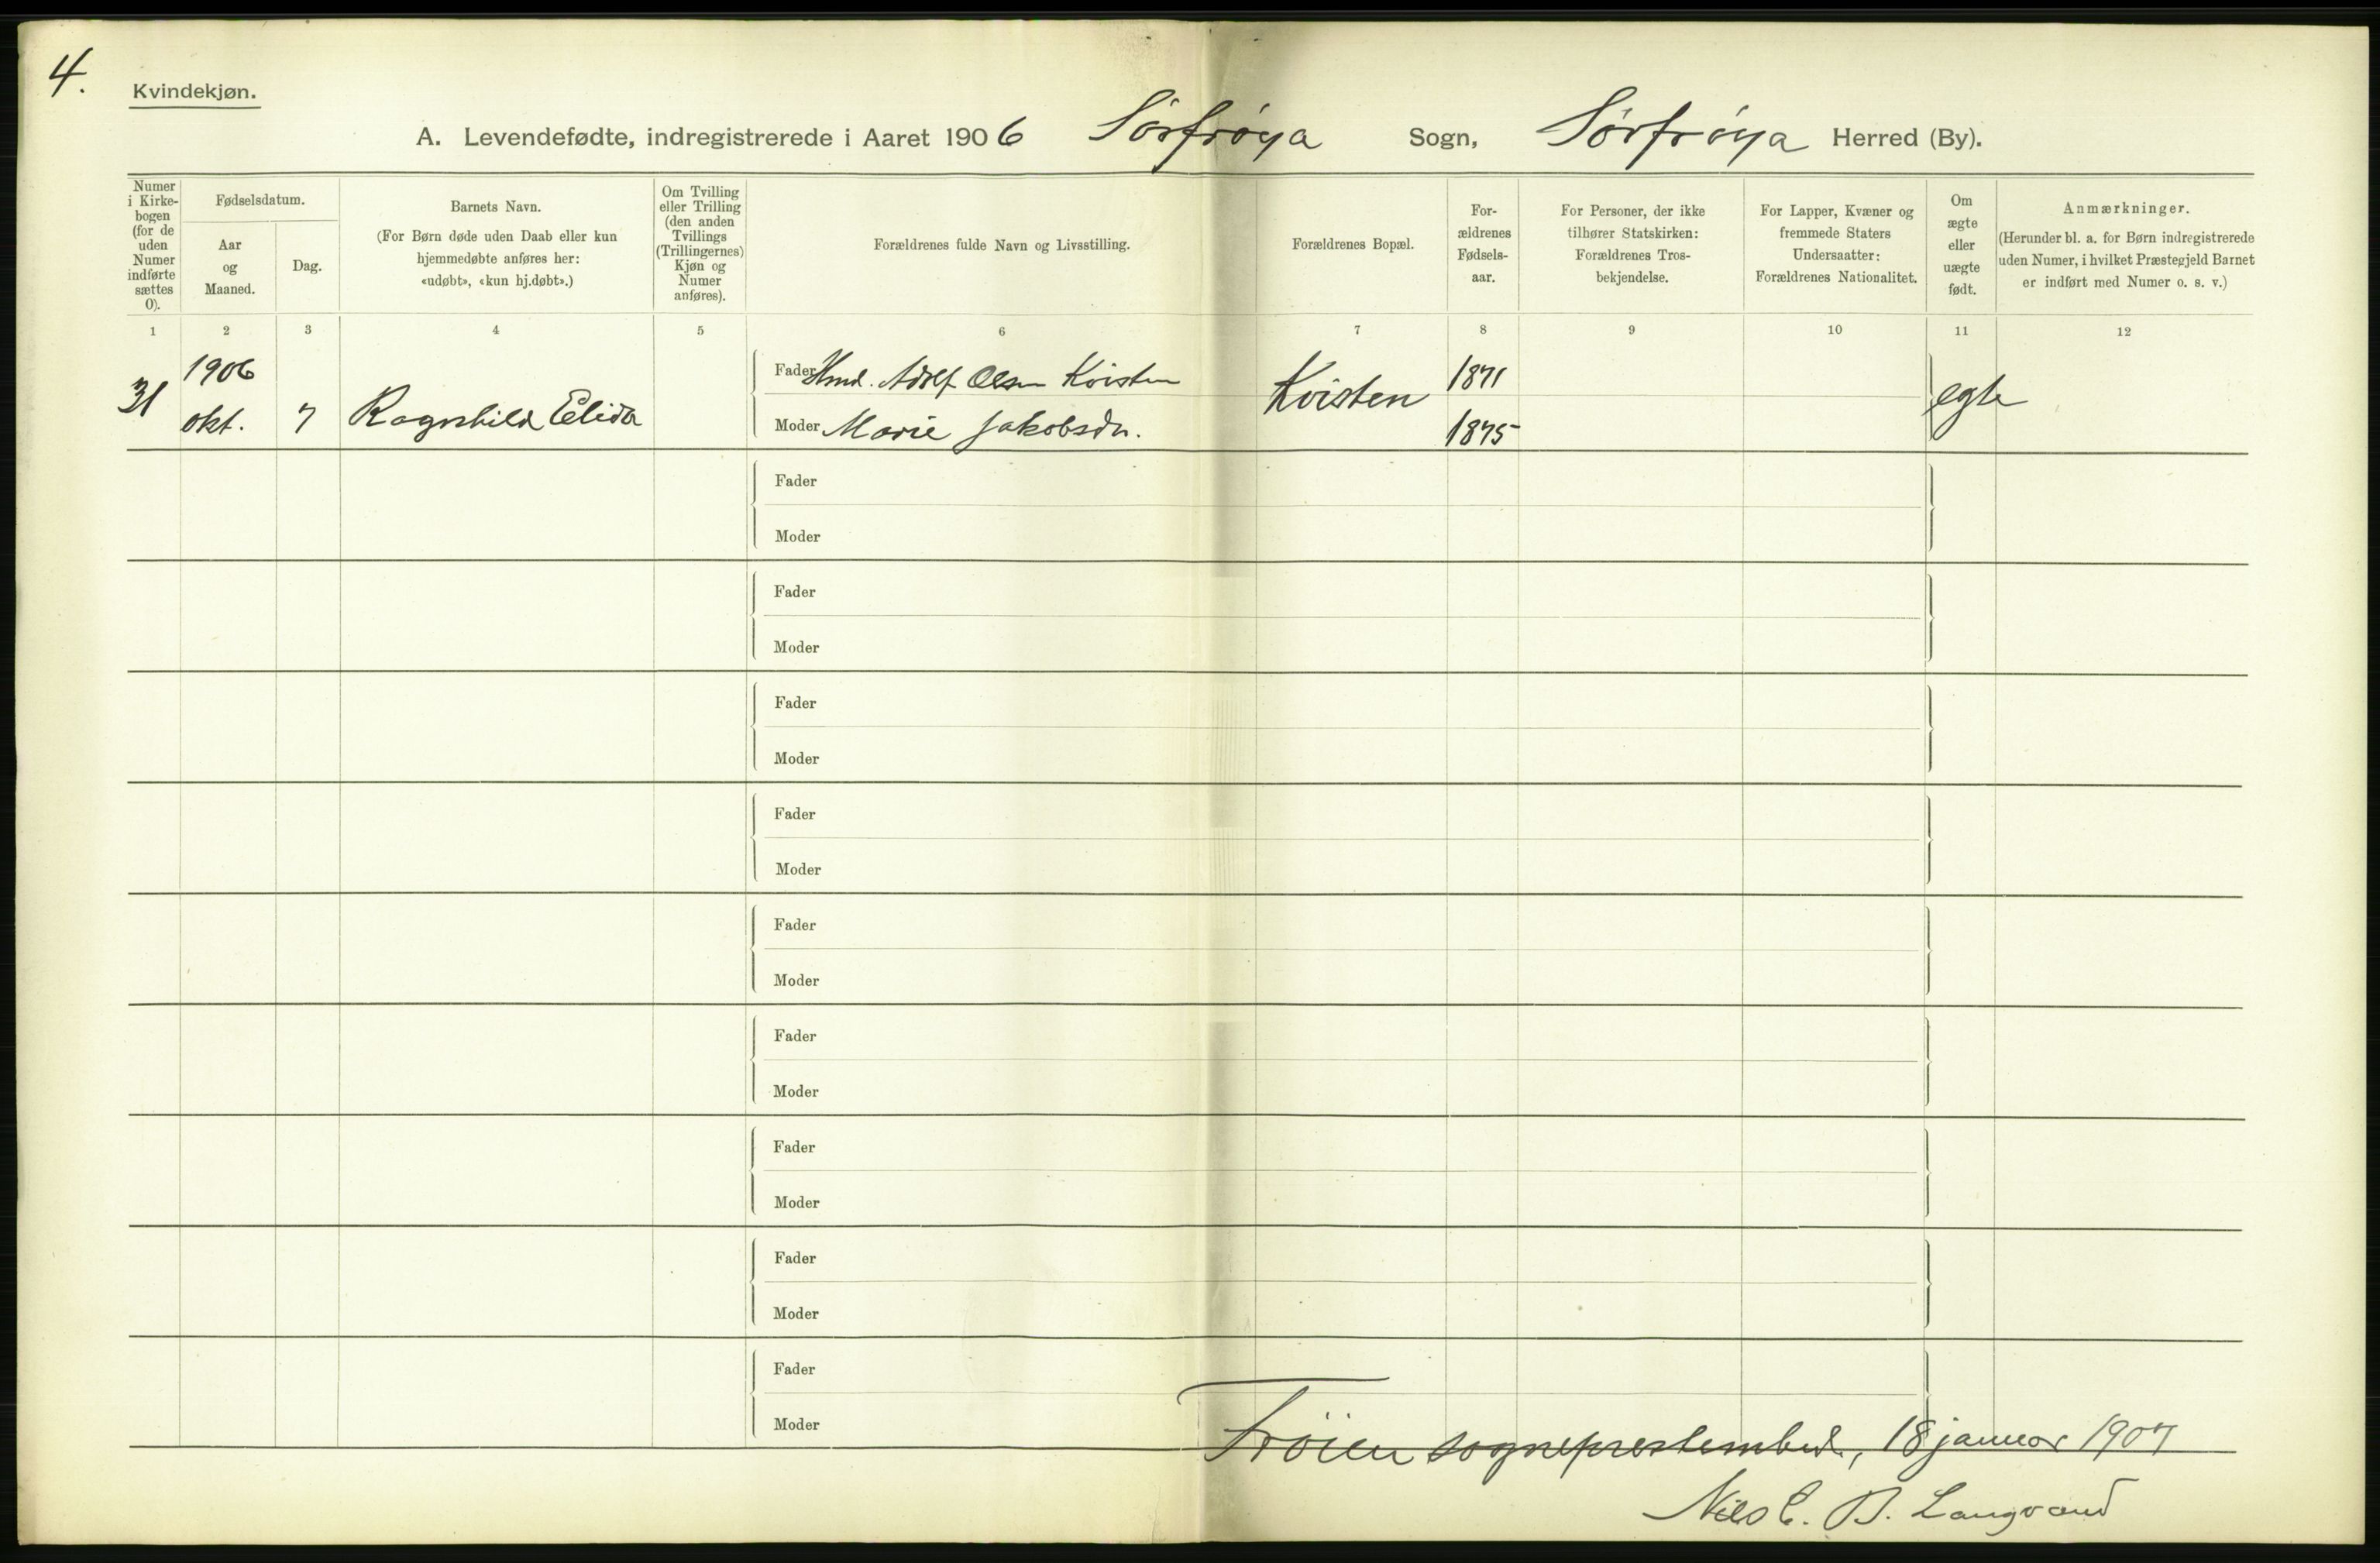 4.
Kvindekjøn.
A. Levendefødte, indregistrerede i Aaret 1906 Sørfrøya Sogn, Sørfrøya Herred (By).
Numer i Kirke-bogen (for de uden Numer indførte sættes 0).
Fødselsdatum.
Aar og Maaned.
Dag.
Barnets Navn.
(For Børn døde uden Daab eller kun hjemmedøbte anføres her: «udøbt», «kun hj.døbt».)
Om Tvilling eller Trilling (den anden Tvillings (Trillingernes) Kjøn og Numer anføres).
Forældrenes fulde Navn og Livsstilling.
Forældrenes Bopæl.
For-ældrenes Fødsels-aar.
For Personer, der ikke tilhører Statskirken: Forældrenes Tros-bekjendelse.
For Lapper, Kvæner og fremmede Staters Undersaatter: Forældrenes Nationalitet.
Om ægte eller uægte født.
Anmærkninger.
(Herunder bl. a. for Børn indregistrerede uden Numer, i hvilket Præstegjeld Barnet er indført med Numer o. s. v.)
1 2 3 4 5 6 7 8 9 10 11 12
31 1906 okt. 7 Ragnhild Elida
Fader Hmd. Adolf Olsen Kvisten
Moder Marie Jakobsdr.
Kvisten 1871 1875 egte
Fader
Moder
Fader
Moder
Fader
Moder
Fader
Moder
Fader
Moder
Fader
Moder
Fader
Moder
Fader
Moder
Fader
Moder
Frøien sogneprestembed, 18 januar 1907
Nils C. B. Langvand